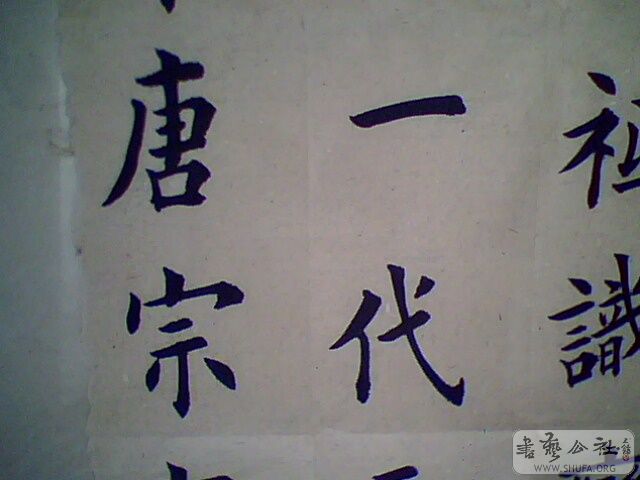 識
一代
唐宗
書藝公社
WWW.SHUFA.ORG